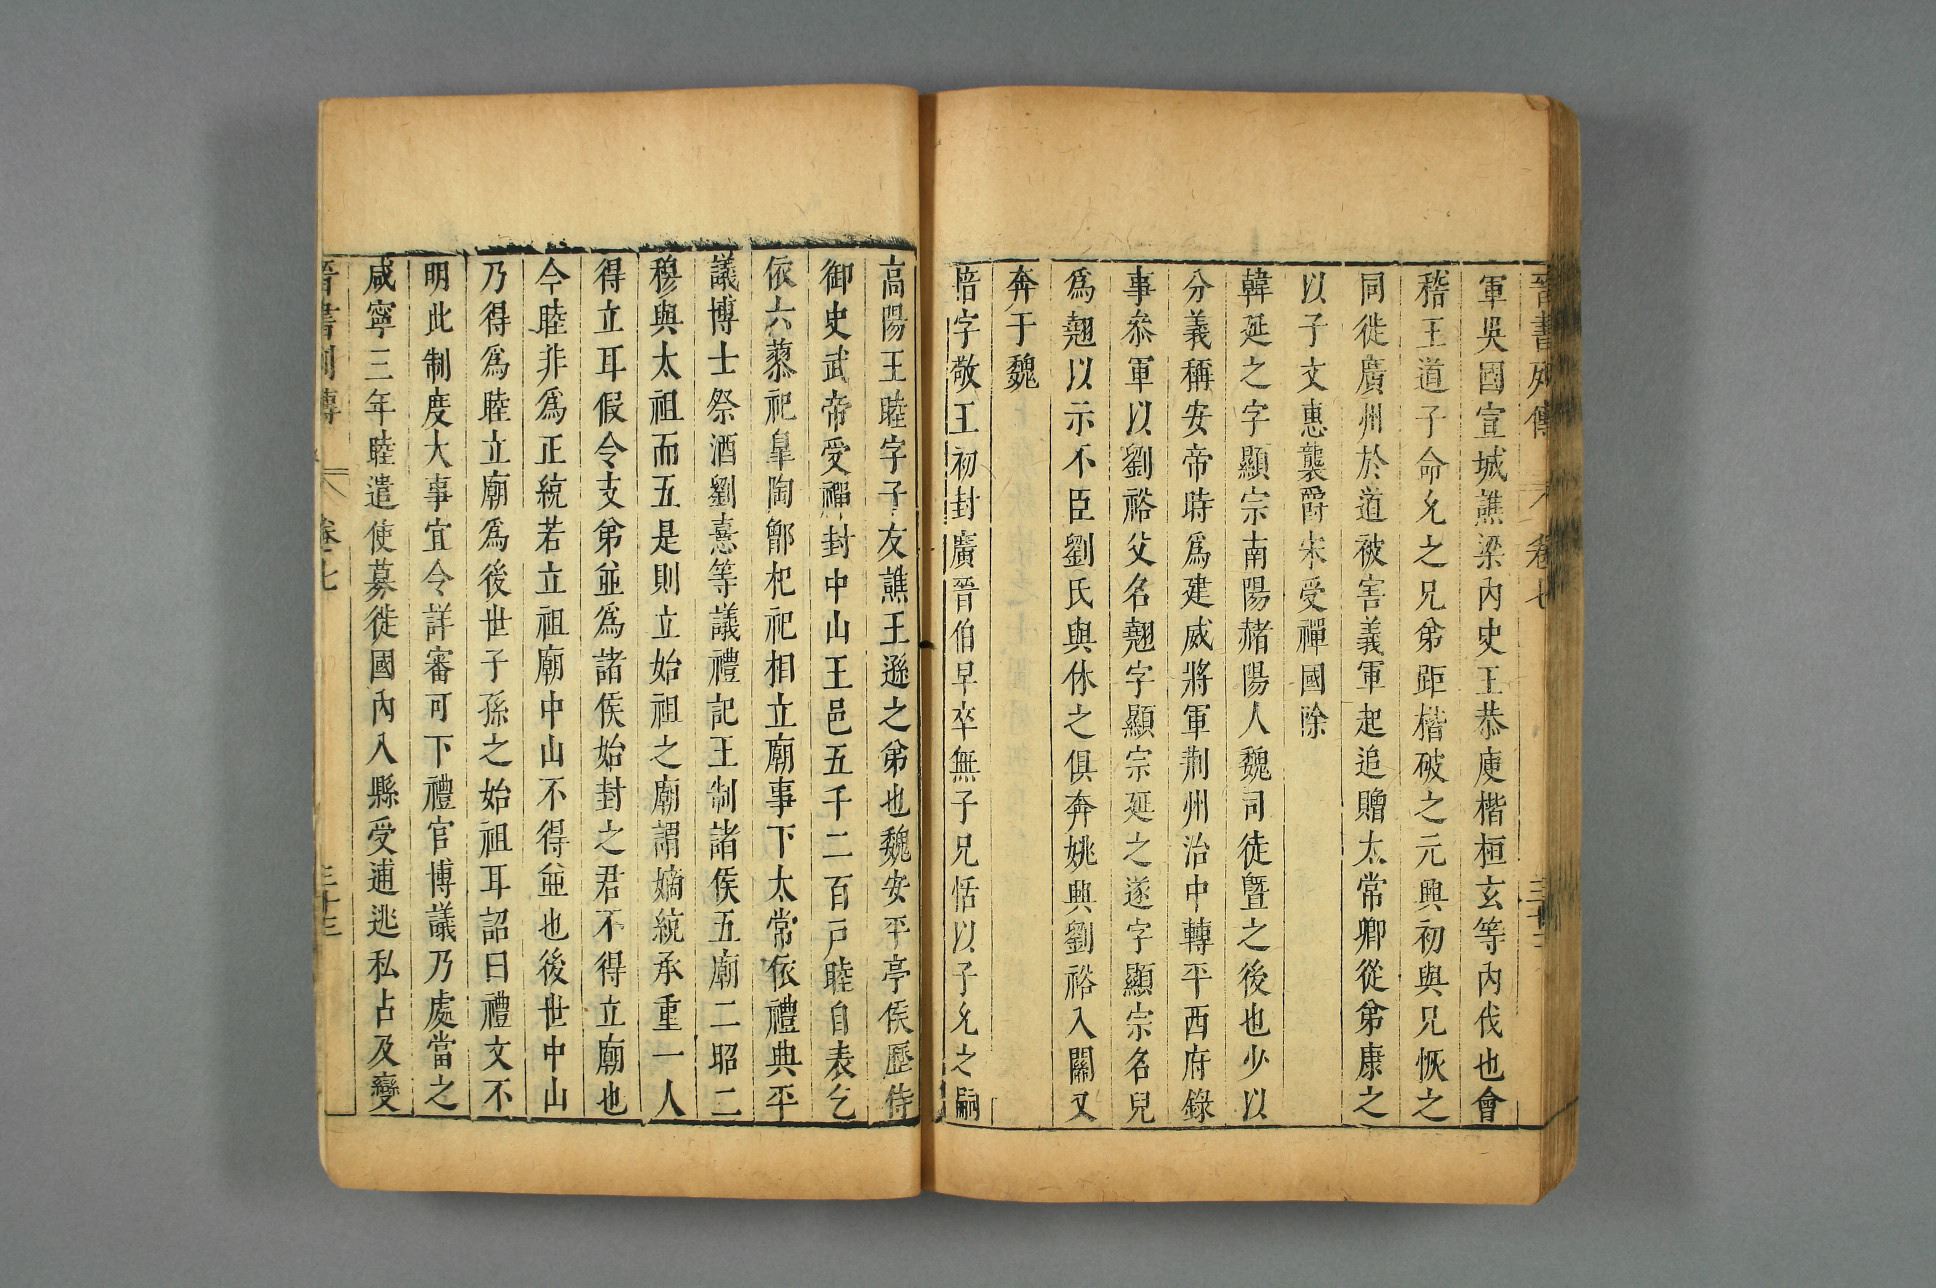 晉書列傳 卷七
軍吳國宣城譙梁內史王恭庾楷桓玄等內伐也會
稽王道子命允之兄弟距楷破之元興初與兄恢之
同徙廣州於道被害義軍起追贈太常卿從弟康之
以子文惠襲爵宋受禪國除
韓延之字顯宗南陽赭陽人魏司徒曁之後也少以
分義稱安帝時爲建威將軍荊州治中轉平西府錄
事叅軍以劉裕父名翹字顯宗延之遂字顯宗名兒
爲翹以示不臣劉氏與休之俱奔姚興劉裕入關又
奔于魏
愔字敬王初封廣晉伯早卒無子兄恬以子允之嗣
高陽王睦字子友譙王遜之弟也魏安平亭侯歷侍
御史武帝受禪封中山王邑五千二百戸睦自表乞
依六蓼祀臯陶鄫杞祀相立廟事下太常依禮典平
議博士祭酒劉憙等議禮記王制諸侯五廟二昭二
穆與太祖而五是則立始祖之廟謂嫡統承重一人
得立耳假令支弟並爲諸侯始封之君不得立廟也
今睦非爲正統若立祖廟中山不得並也後世中山
乃得爲睦立廟爲後世子孫之始祖耳詔曰禮文不
明此制度大事宜令詳審可下禮官博議乃處當之
咸寧三年睦遣使募徙國內八縣受逋逃私占及變
晉書列傳 卷七 三十三